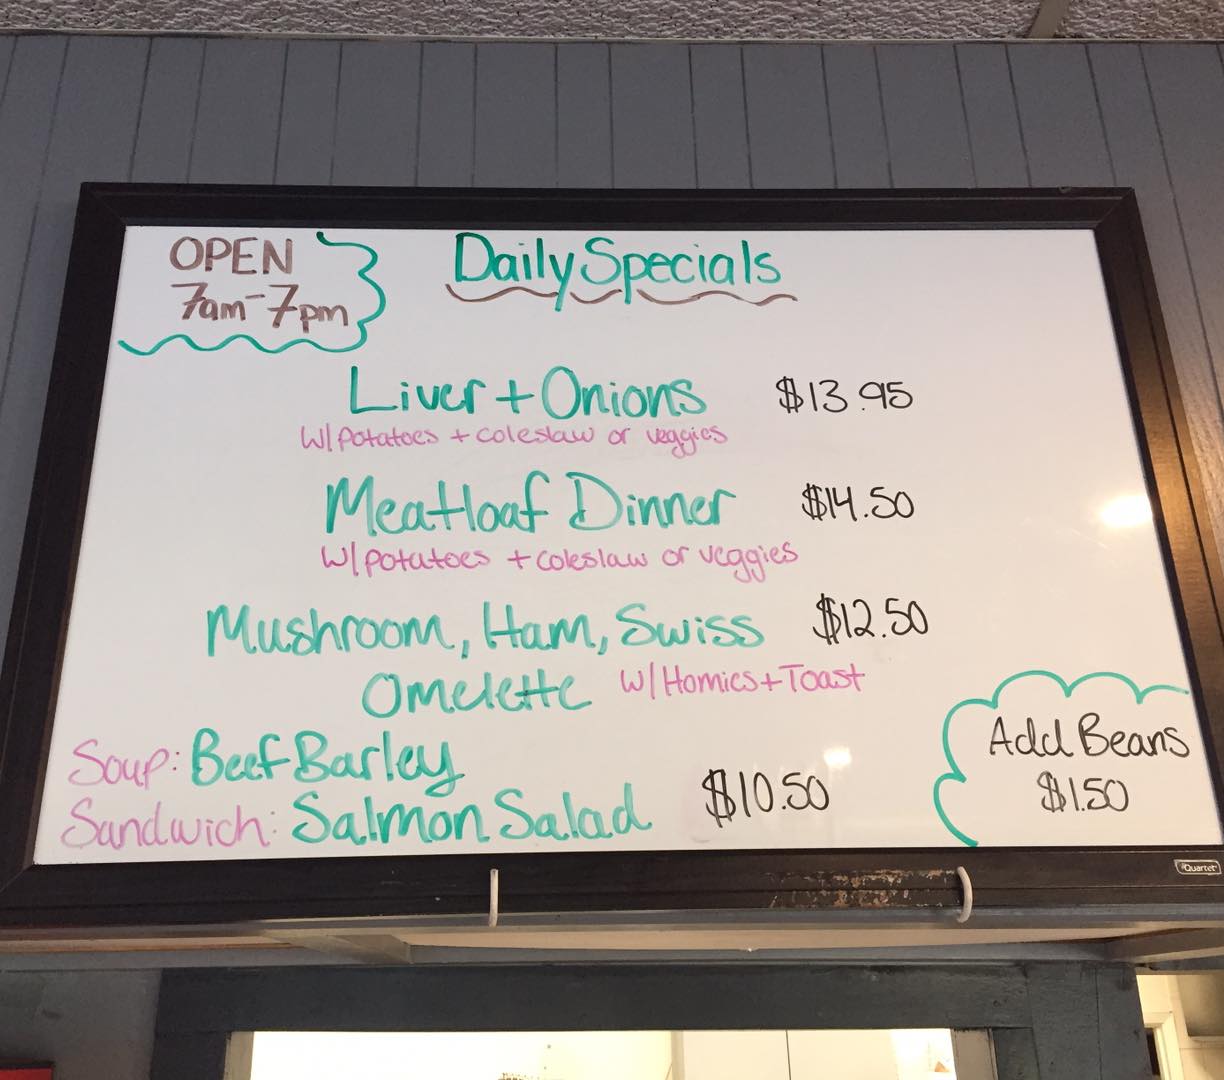 OPEN
7am-7pm
Daily Specials
Liver + Onions $13.95
W/potatoes + coleslaw or veggies
Meatloaf Dinner $14.50
W/potatoes + coleslaw or veggies
Mushroom, Ham, Swiss $12.50
Omelette W/Homies + Toast
Soup: Beef Barley
Sandwich: Salmon Salad $10.50
Add Beans
$1.50
Quartet